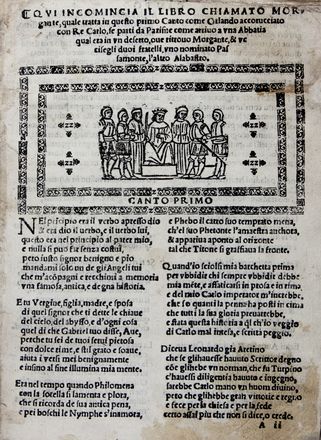 QVI INCOMINCIA IL LIBRO CHIAMATO MOR
gante, quale tratta in questo primo Canto come Orlando accorucciato
con Re Carlo, se parti da Parise come arriuo a vna Abbatia
qual era in vn deserto, oue ritrouo Morgante, & vc
cisegli duoi fratelli, vno nominato Pas
samonte, l'altro Alabastro.
CANTO PRIMO
NEl principio era il verbo apresso dio
et era dio il verbo, e il verbo lui,
questo era nel principio al pater mio,
e nulla si puo far senza costui,
pero iusto signor benigno e pio
mandami solo un de gli Angeli tui
che m'acōpagni e rechimi a memoria
vna famosa, antica, e degna historia.
Et tu Vergine, figlia, madre, e sposa
di quel signor che ti dette le chiaue
del cielo, del abysso, e d'ogni cosa
quel di che Gabriel tuo disse, Aue,
perche tu sei de tuoi serui pietosa
con dolce rime, e stil grato e soaue,
aiuta i versi mei benignamente
e insino al fine illumina mia mente.
Era nel tempo quando Philomena
con la sorella si lamenta e plora,
che si ricorda de sua antica pena,
e pei boschi le Nymphe s'inamora,
e Phebo il carro suo temprato mena,
ch'el suo Phetonte l'amaestra anchora,
& appariua aponto al orizonte
tal che Titone si graffaua la fronte.
Quand'io sciolsi mia barchetta prima
per vbbidir chi sempre vbbidir debbe
mia mēte, e affaticarsi in prosa e in rima
e del mio Carlo imperator m'increbbe,
che so quanti la penna ha posti in cima
che tutti la sua gloria preuarrebbe,
esta quista historia a ql ch'io veggio
di Carlo mal intesa, e scritta peggio.
Diceua Leonardo gia Aretino
che se glihauesse hauuto Scrittor degno
cōe glihebbe, vn Ormano, che sia Turpino
c'hauesse diligentia hauuto e ingegno,
sarebbe Carlo mano vn huom diuino,
pero che glihebbe gran vittorie e regno
e fece per la chiesa e per la fede
certo assai piu che non si dice, o crede.
A ii